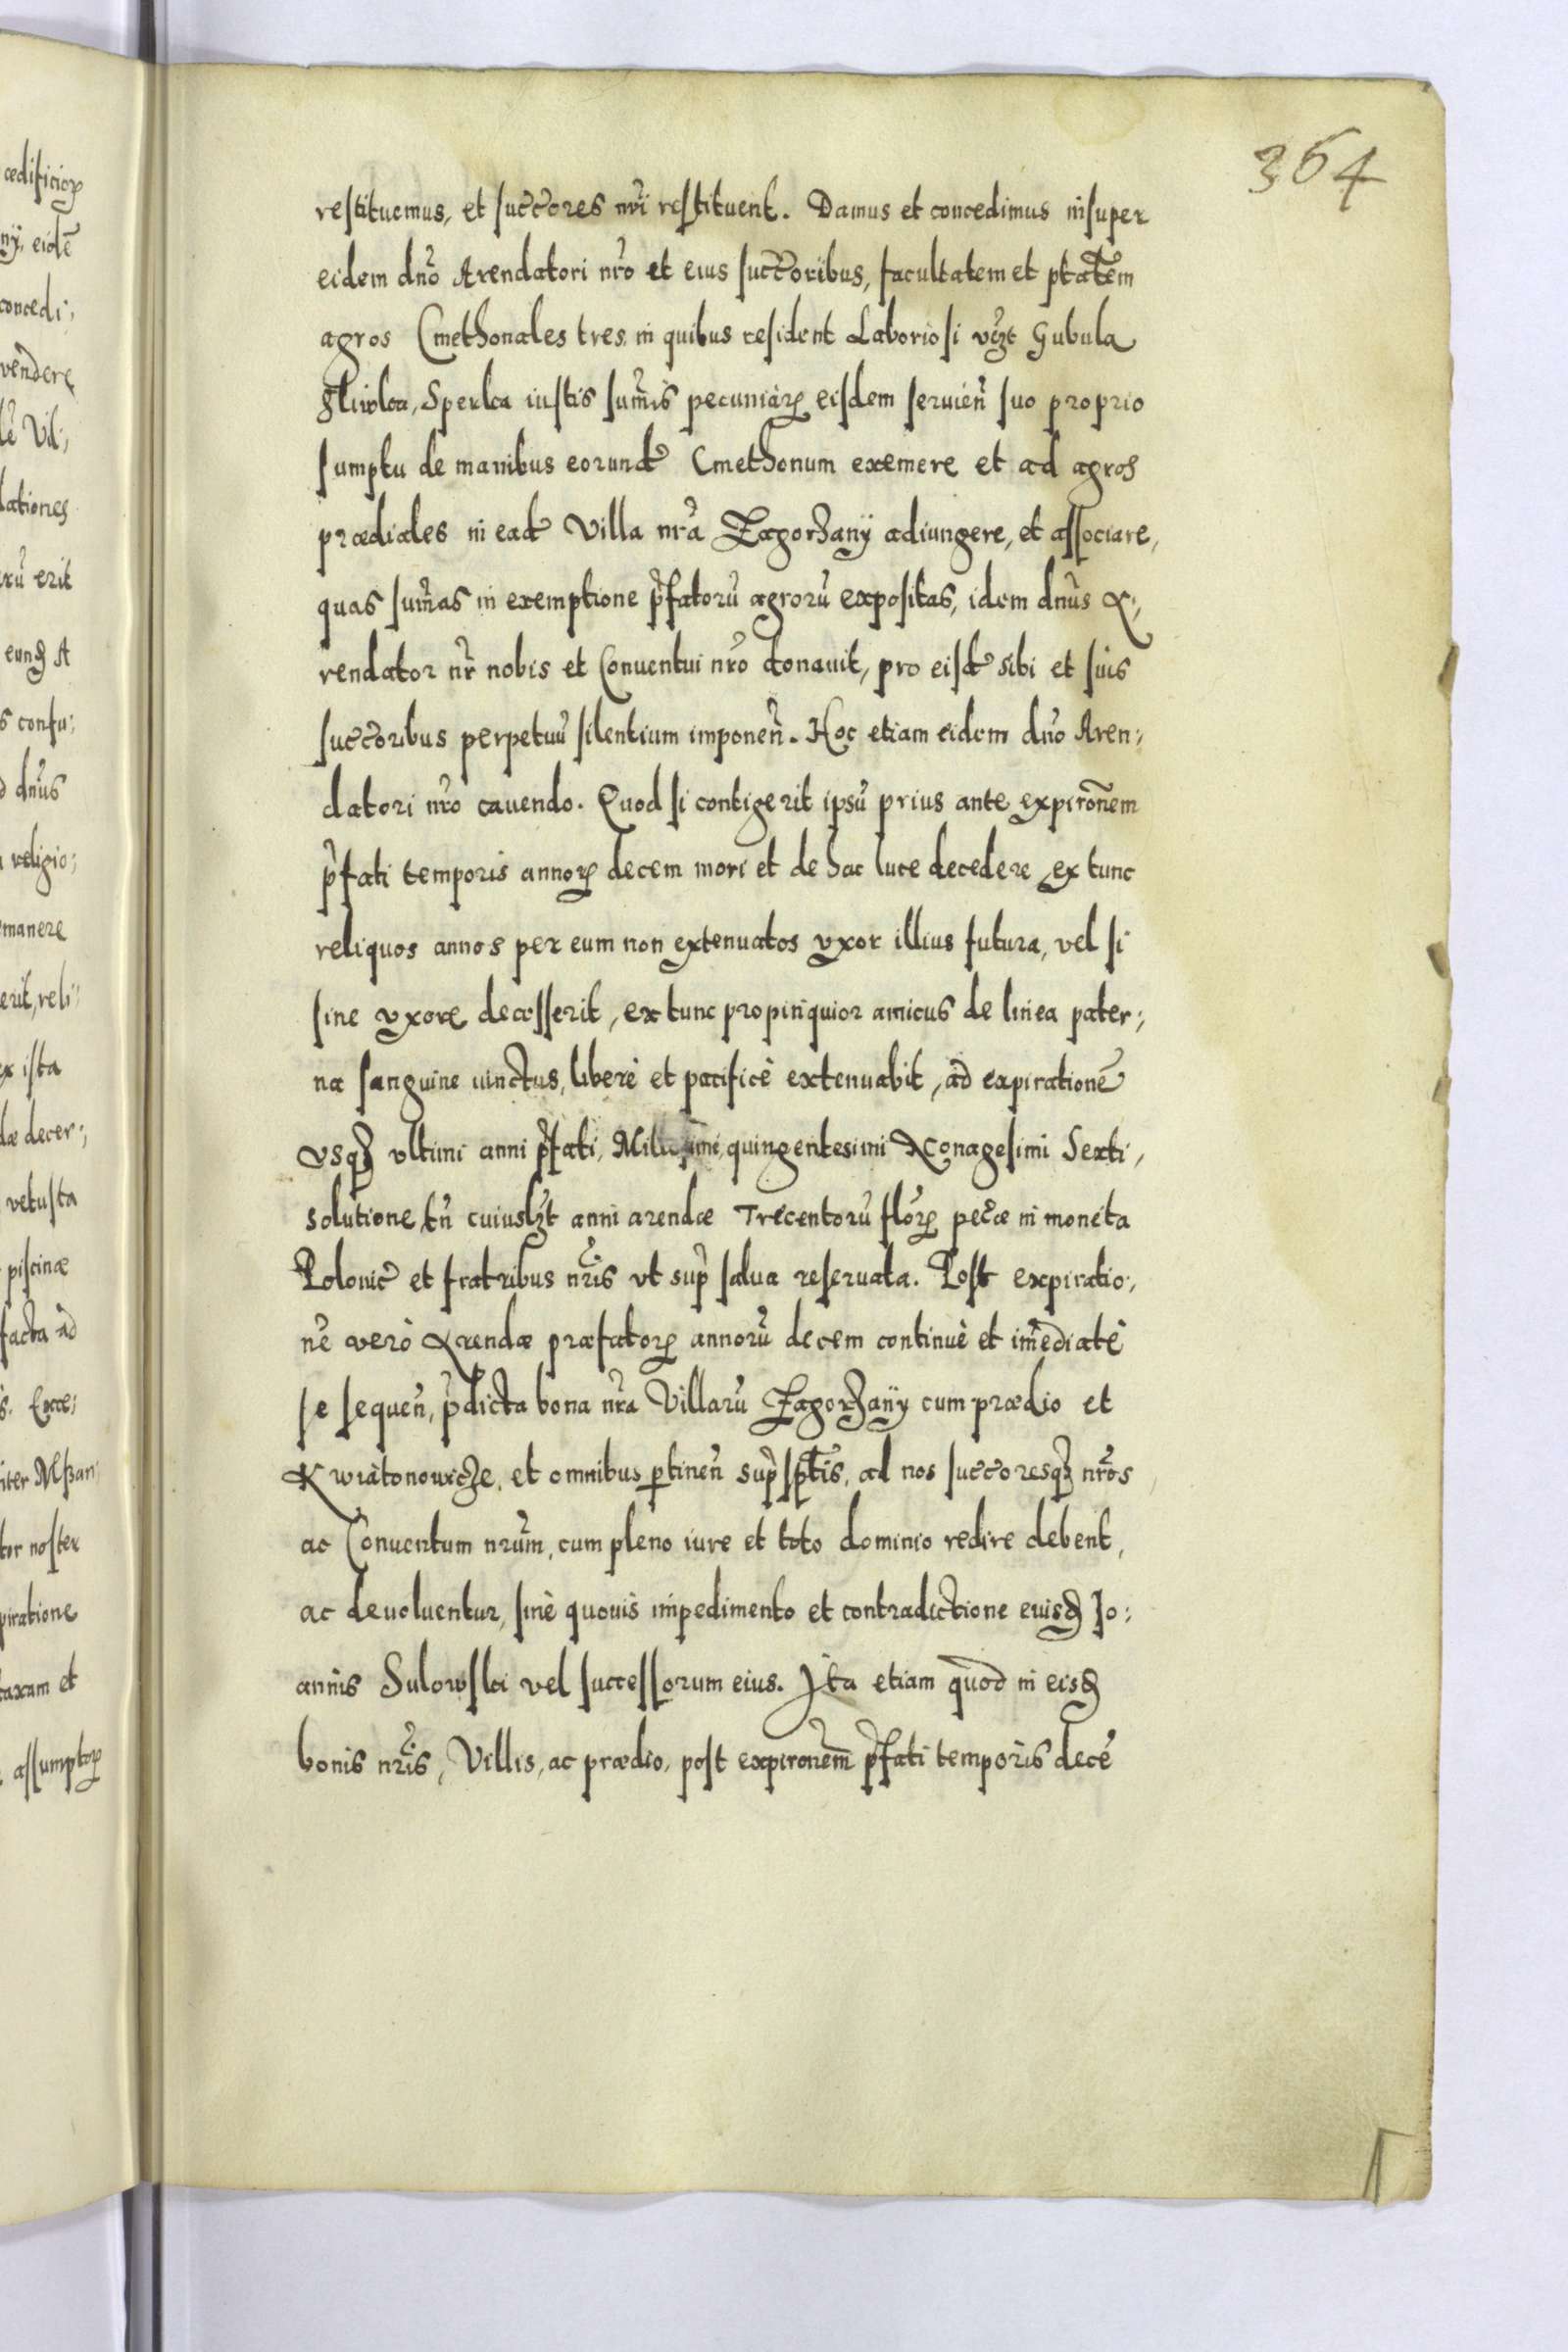 364
restituemus, et succores nri restituent. Damus et concedimus insuper
eidem dno Arendatori nro et eius succoribus, facultatem et ptatem
agros Cmethonales tres, in quibus resident Laboriosi vzt Gubula
Sperka iustis summis pecuniarꝝ eisdem seruien̄ suo proprio
sumptu de manibus eorund Cmethonum exemere et ad agros
prædiales in ead Villa nra Zagorzany adiungere, et associare,
quas summas in exemptione p̄fatorū agrorū expositas, idem dnus A:,
rendator nr nobis et Conuentui nro donauit, pro eisd sibi et suis
succoribus perpetuū silentium imponen̄. Hoc etiam eidem dno Aren:,
datori nro cauendo. Quod si contigerit ipsū prius ante expironem
p̄fati temporis annorꝝ decem mori et de hac luce decedere ex tunc
reliquos annos per eum non extenuatos vxor illius futura, vel si
sine vxore decesserit, ex tunc propinquior amicus de linea pater:,
na sanguine uinctus, liberè et pacificè extenuabit, ad expirationē
vsqȝ vltimi anni p̄fati, Millesimi, quingentesimi Nonagesimi Sexti,
solutione tn̄ cuiuslȝt anni arendæ Trecentorū florꝝ pecꝫæ in moneta
Polonic et fratribus nris vt supͣ salua reseruata. Post expiratio:,
nē verò Arendæ præfatorꝝ annorū decem continuè et imediatè
se sequen̄, p̄dicta bona nra Villarū Zagorzany cum prædio et
Kwiatonowicze, et omnibus ꝑtinen̄ supͣ sptis, ad nos succoresqȝ nros
ac Conuentum nrum, cum pleno iure et toto dominio redire debent,
ac deuoluentur, sinè quouis impedimento et contradictione euisd Jo:
annis Sulowski vel successorum eius. Ita etiam quod in eisd
bonis nris, Villis, ac prædio, post expironem p̄fati temporis decē